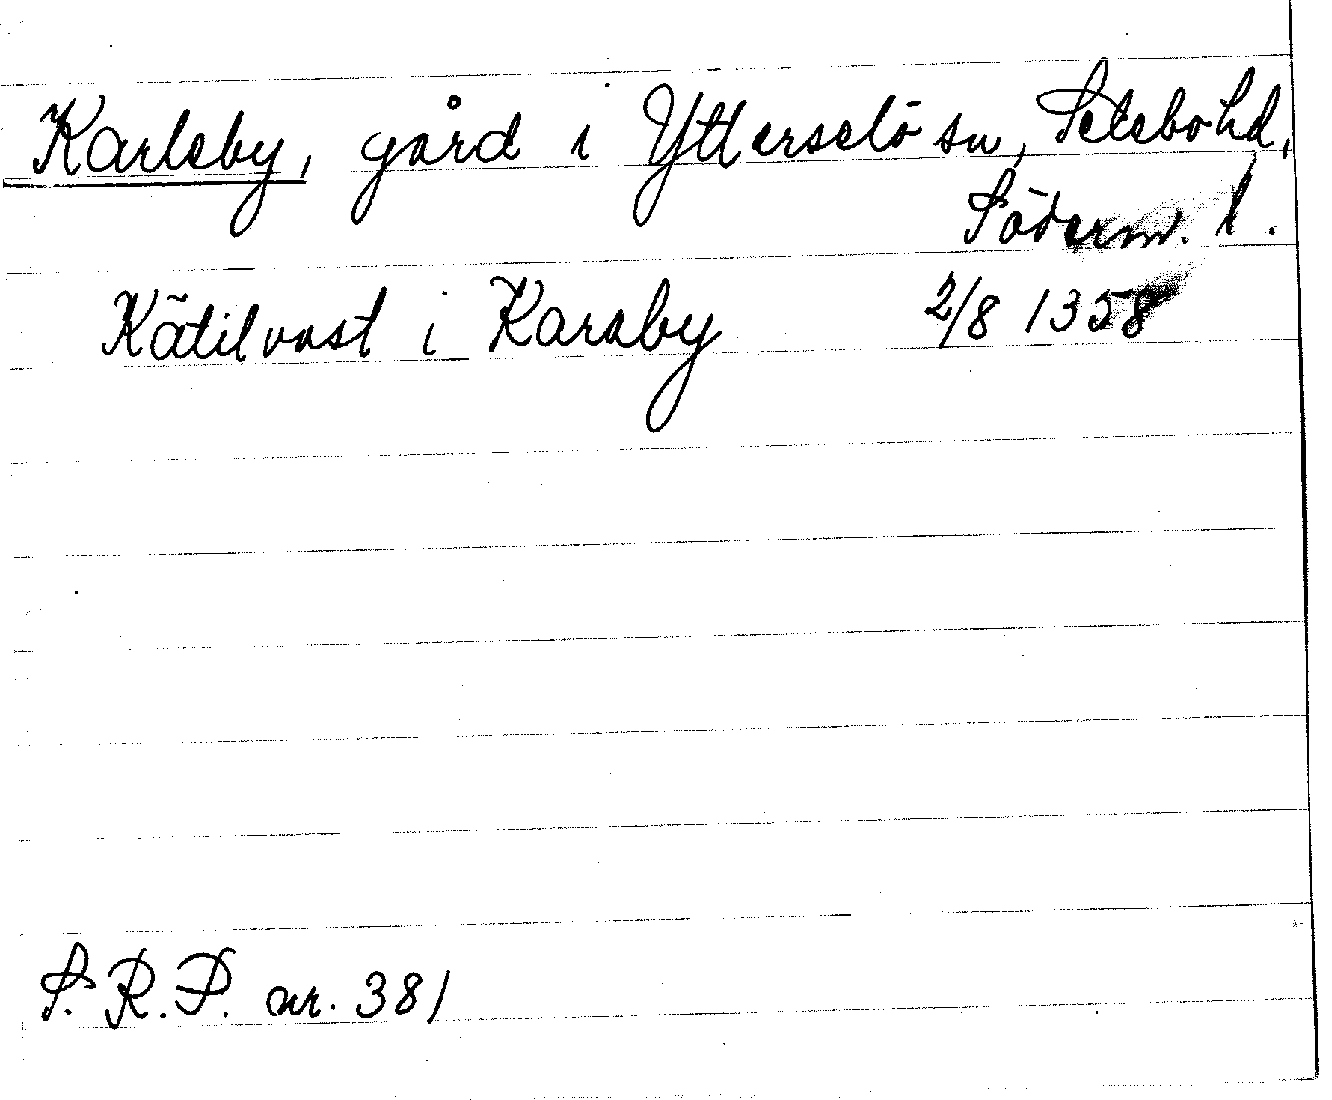 Karleby, gård i Ytterselö sn, Selebo hd,
Söderm. l.
Kätilvast i Karaby 2/8 1358
S.R.P. nr. 381